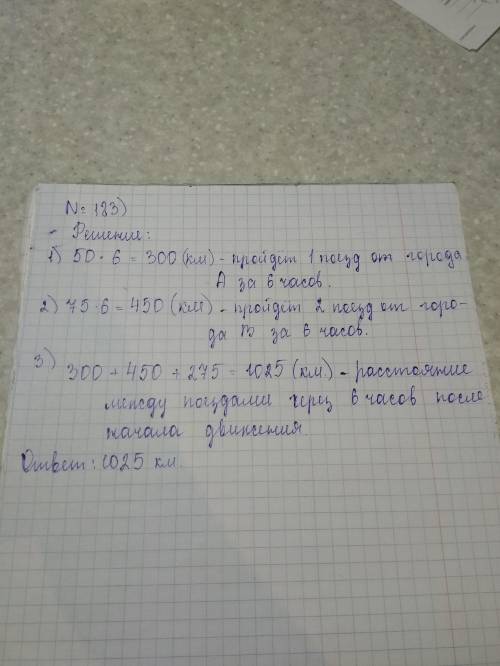 № 183)
- Решение:
1) 50 · 6 = 300 (км) - пройдет 1 поезд от города
А за 6 часов.
2) 75 · 6 = 450 (км) - пройдет 2 поезд от горо-
да В за 6 часов.
3) 300 + 450 + 275 = 1025 (км) - расстояние
между поездами через 6 часов после
начала движения.
Ответ: 1025 км.